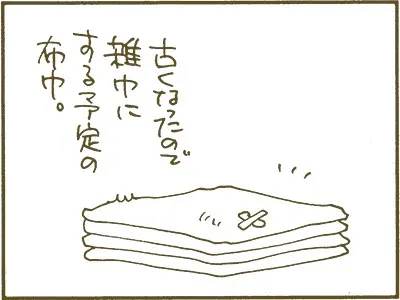 古くなったので
雑巾に
する予定の
布巾。